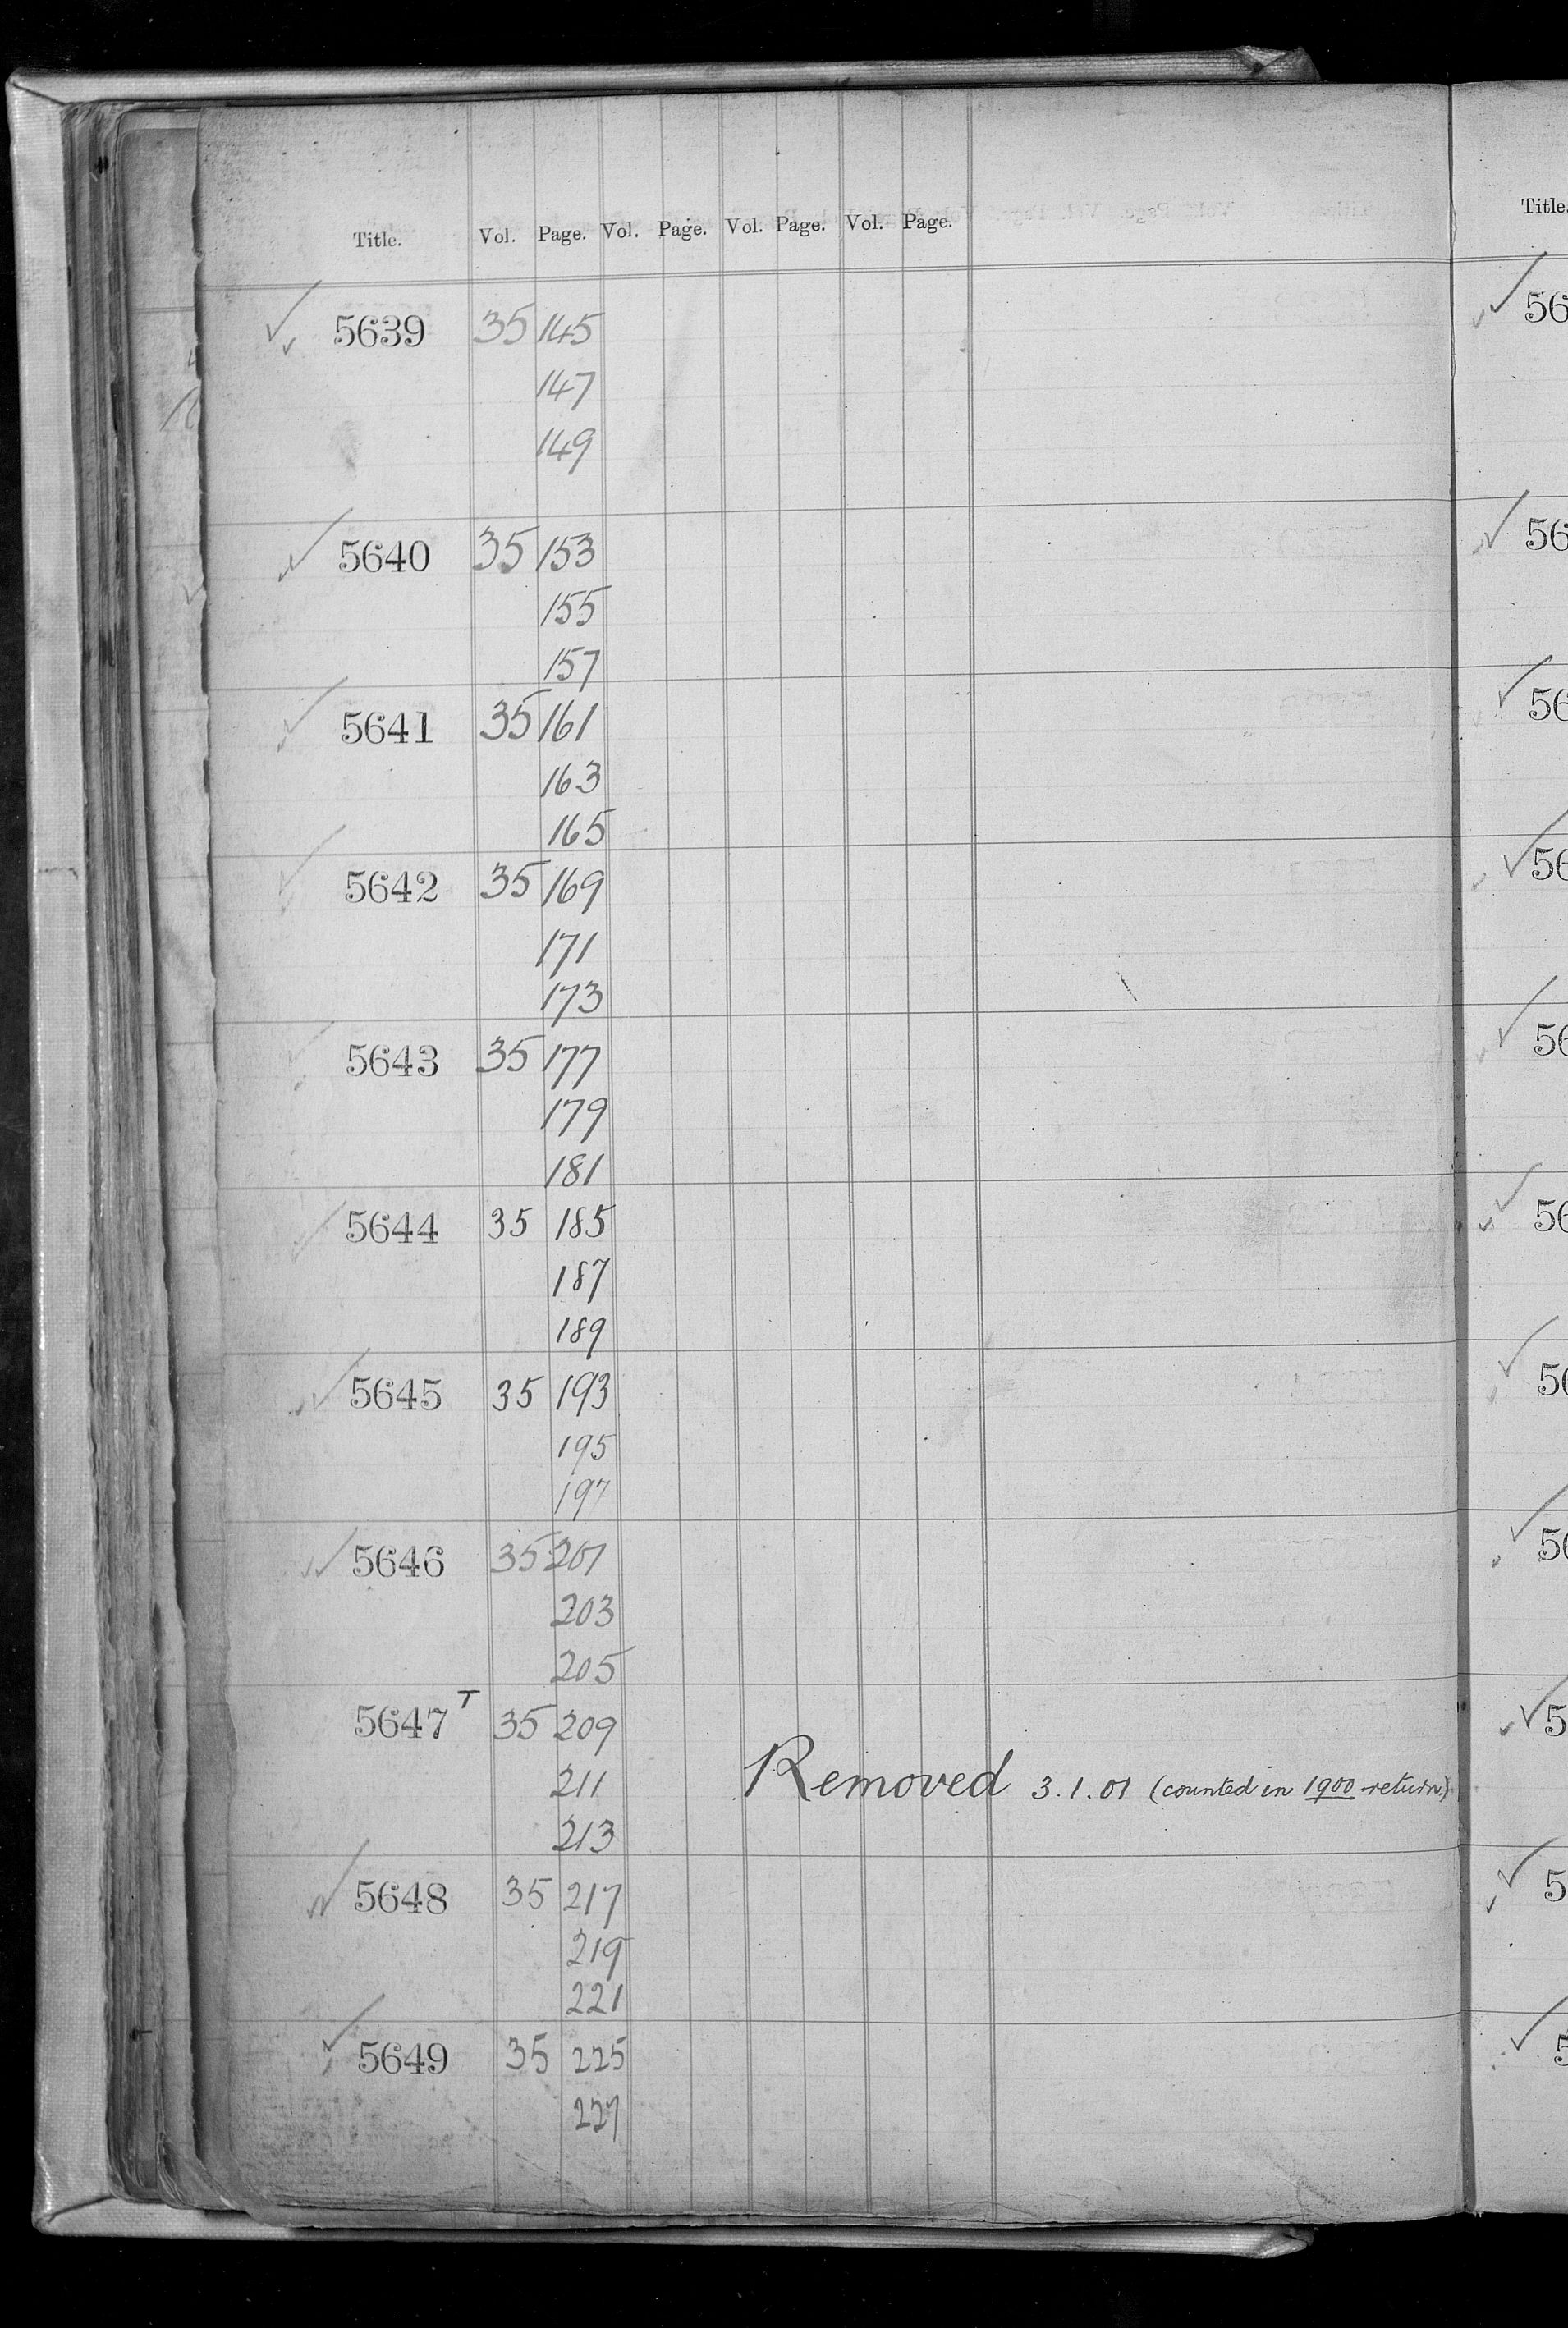 Title. Vol. Page. Vol. Page. Vol. Page. Vol. Page. Title.
5639 35 145
147
149
5640 35 153
155
157
5641 35 161
163
165
5642 35 169
171
173
5643 35 177
179
181
5644 35 185
187
189
5645 35 193
195
197
5646 35 201
203
205
5647 T 35 209
211 Removed 3.1.01 (counted in 1900 return)
213
5648 35 217
219
221
5649 35 225
227